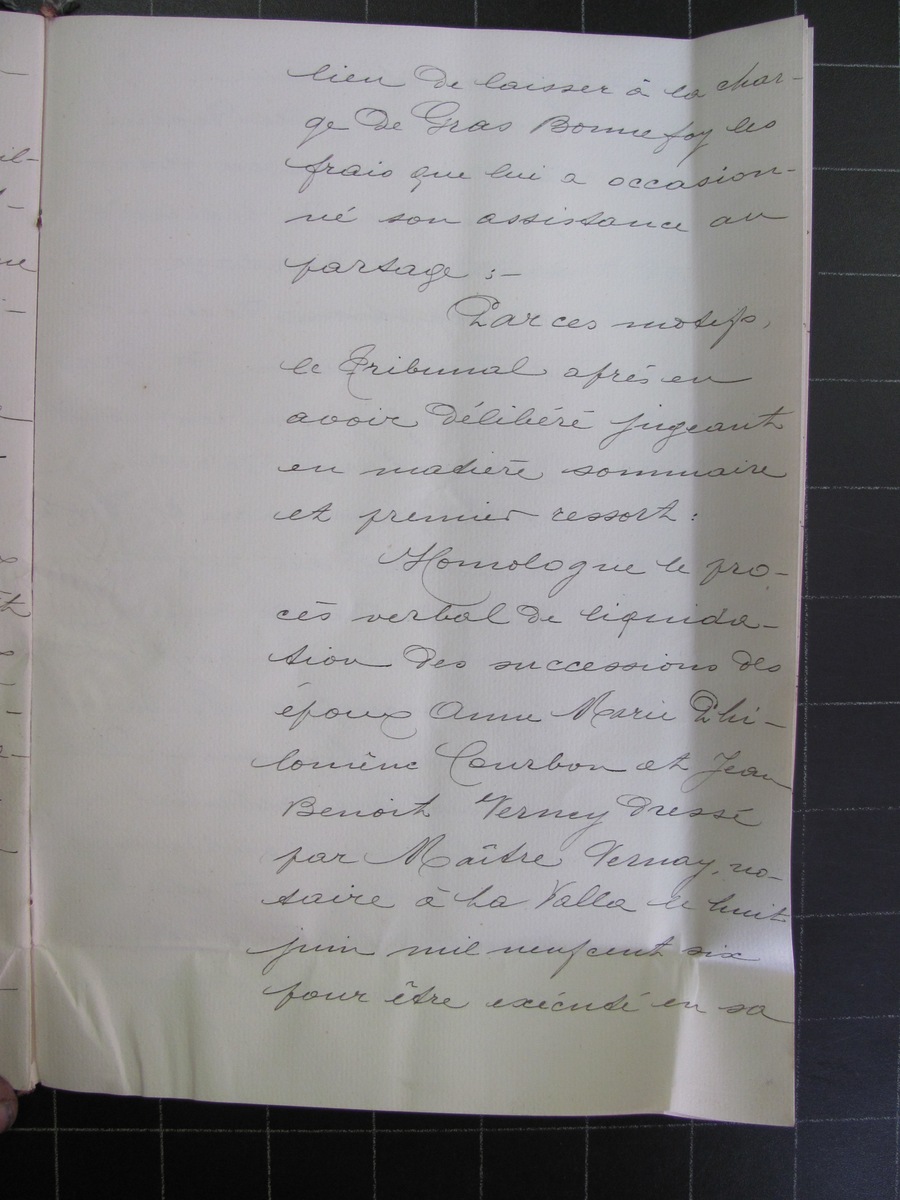 lieu de laisser à la char-
ge de Gras Bonnefoy les
frais que lui a occasion-
né son assistance au
partage :-
Par ces motifs,
le Tribunal après en
avoir délibéré jugeant
en matière sommaire
et premier ressort :
Homologue le pro-
cès verbal de liquida-
tion des successions des
époux Anne Marie Phi-
lomène Courbon et Jean
Benoit Verney dressé
par Maître Vernay, no-
taire à La Valla le huit
juin mil neufcent six
pour être exécuté en sa